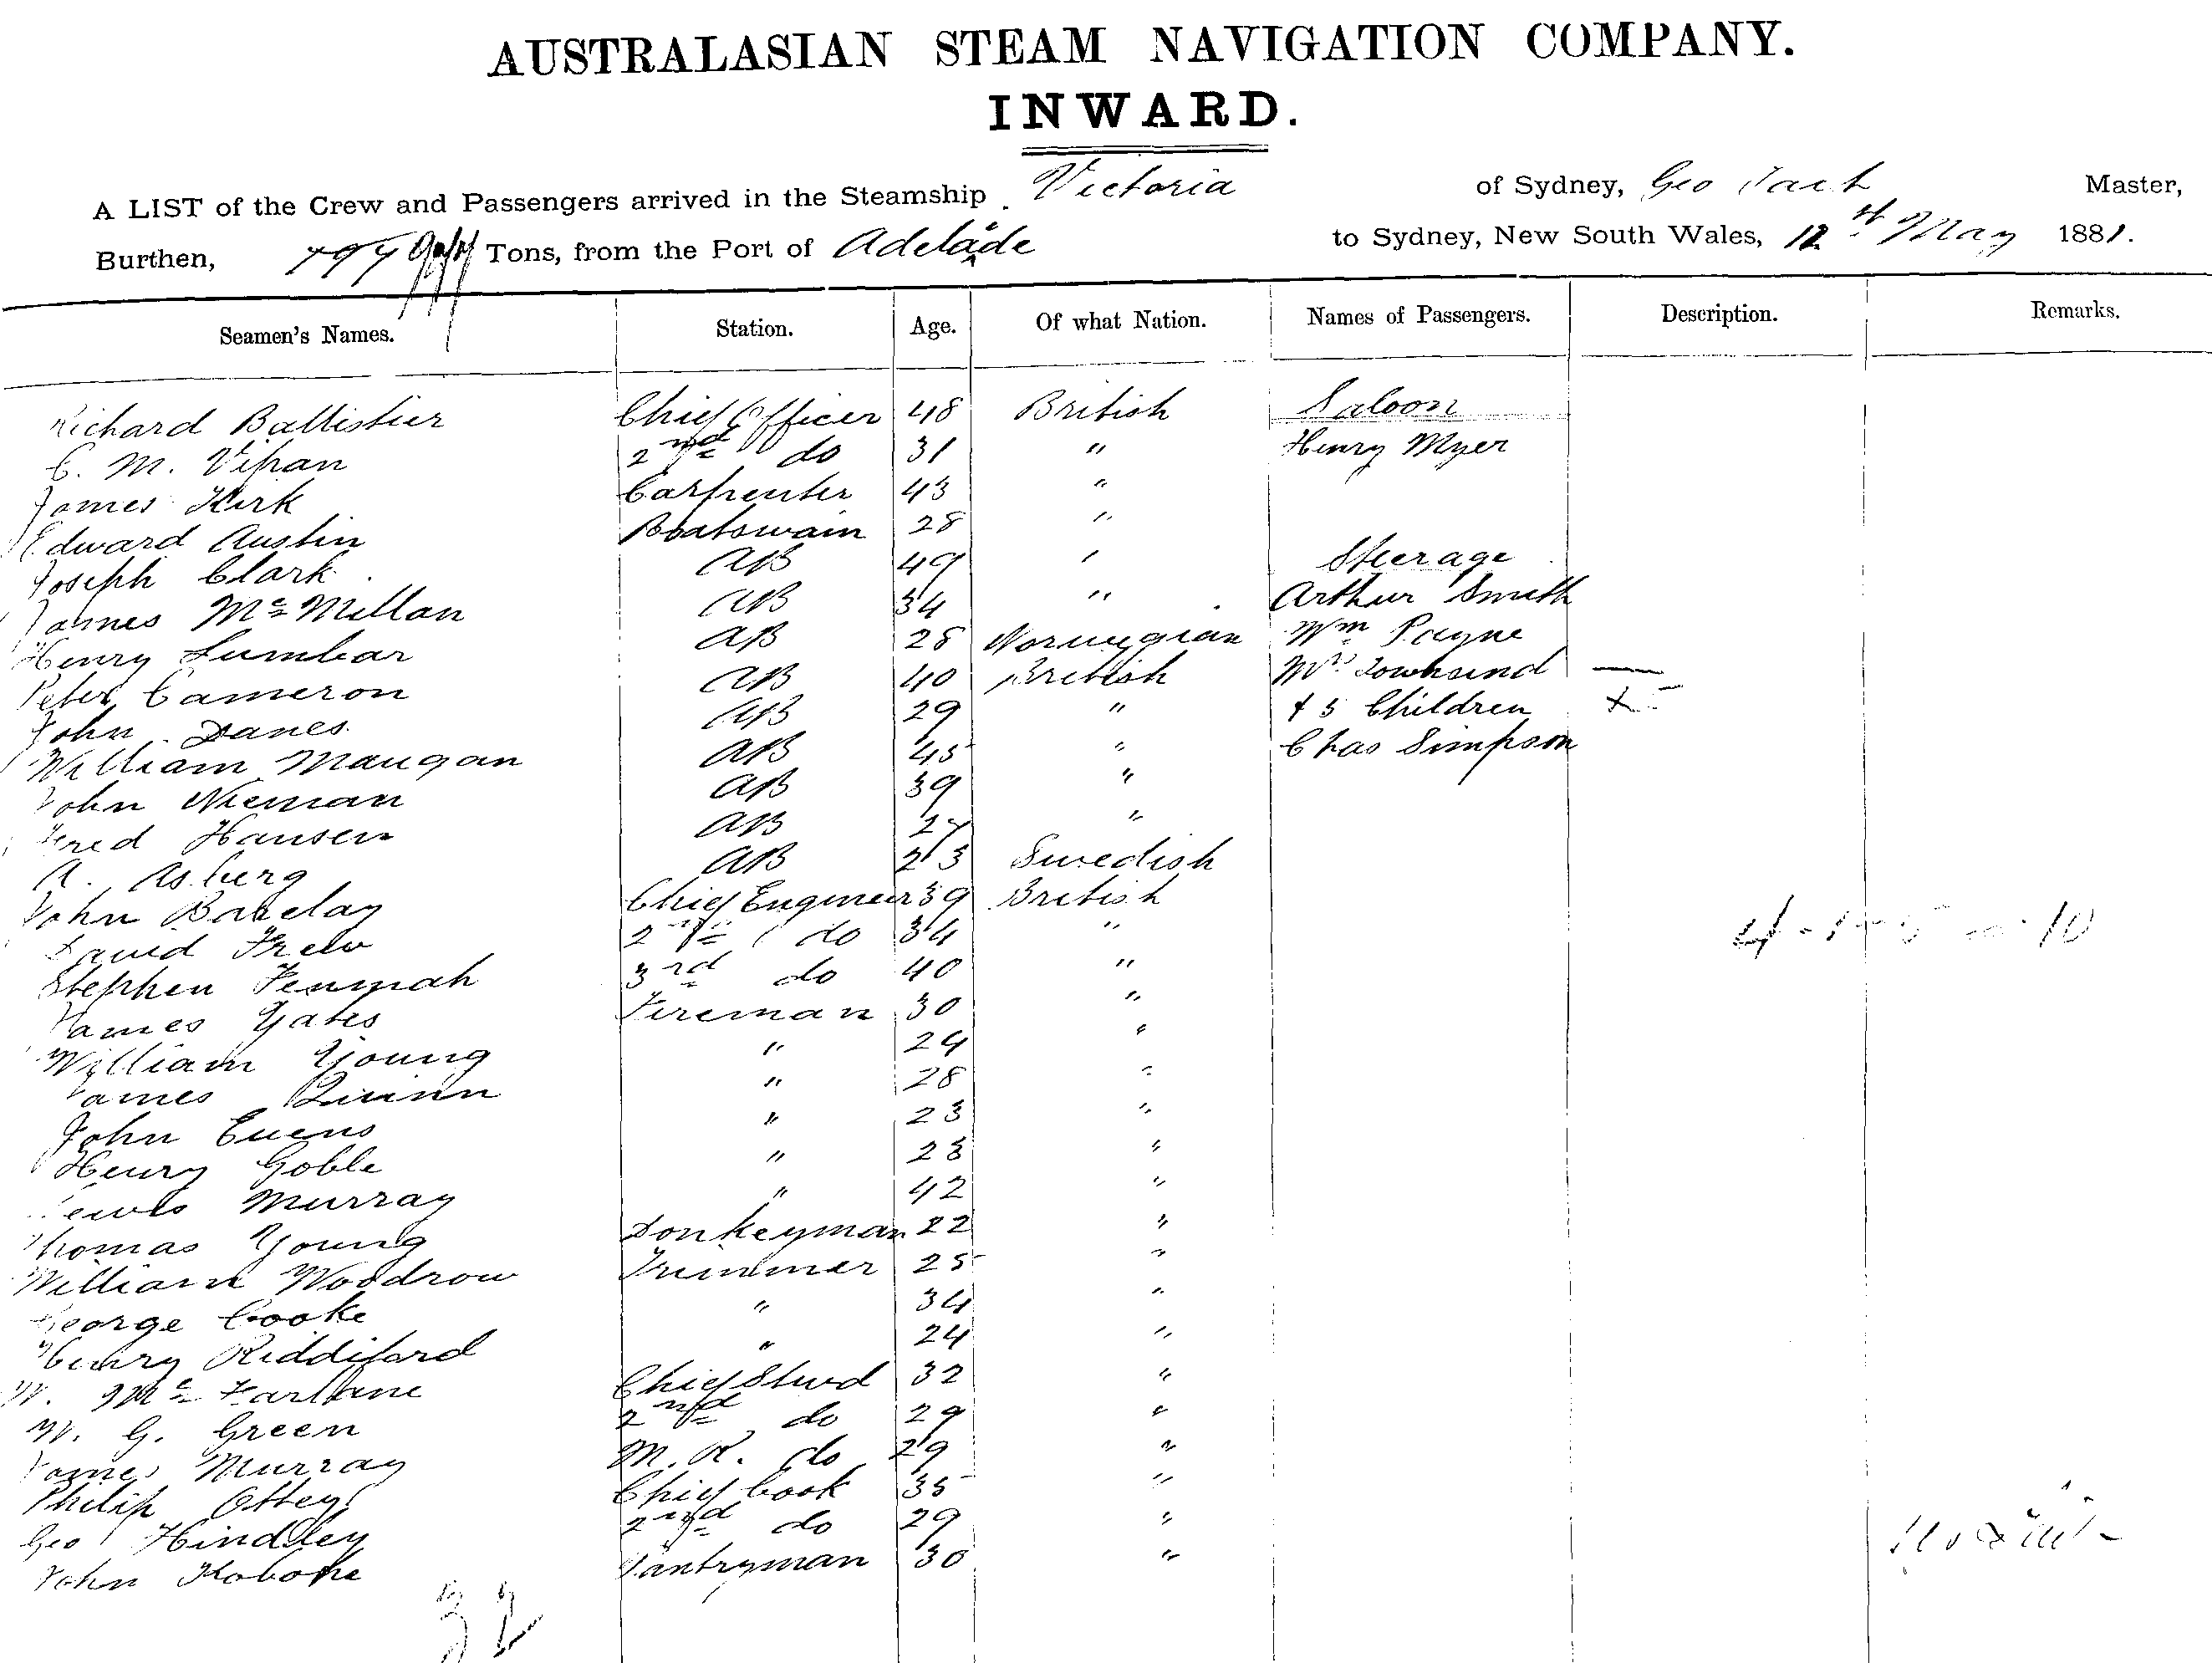 AUSTRALASIAN STEAM NAVIGATION COMPANY.
INWARD.
A LIST of the Crew and Passengers arrived in the Steamship Victoria of Sydney, Geo Master,
Burthen, Tons, from the Port of Adelaide to Sydney, New South Wales, 12th May 1881.
Seamen's Names. Station. Age. Of what Nation. Names of Passengers. Description. Remarks.
Richard Battistier Chief Officer 48 British Saloon
C. M. Vipan 2nd do 31 " Henry Myer
James Kirk Carpenter 43 "
Edward Austin Boatswain 28 "
Joseph Clark AB 49 " Steerage
James McMillan AB 34 " Arthur Smith
Henry Lumbar AB 28 Norwegian Wm Payne
Peter Cameron AB 40 British Mrs Townsend —
John Danes AB 29 " + 5 Children
William Maugan AB 45 " Chas Simpson
John Nieman AB 39 "
Fred Hansen AB 27 "
A. Asberg AB 23 Swedish
John Barclay Chief Engineer 39 British
David Frew 2nd do 34 "
Stephen 3rd do 40 "
James Yates Fireman 30 "
William Young " 24 "
James Quinn " 28 "
John Evens " 23 "
Henry Goble " 23 "
Lewis Murray " 42 "
Thomas Young Donkeyman 22 "
William Woodrow Trimmer 25 "
George Cooke " 34 "
Henry Riddiford " 24 "
W. McFarlane Chief Stwd 32 "
W. G. Green 2nd do 29 "
James Murray M.R. do 29 "
Philip Ottey Chief Cook 35 "
Geo Hindley 2nd do 29 "
John Pantryman 30 "
32